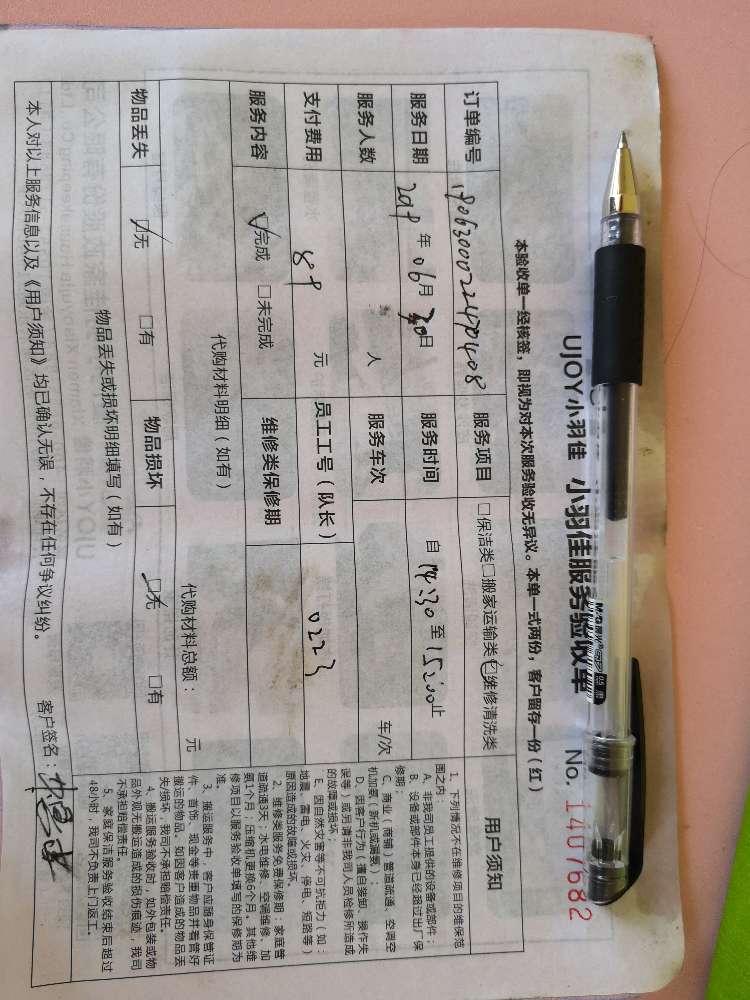 UJOY小羽佳 小羽佳服务验收单 No. 1407682
本验收单一经核签，即视为对本次服务验收无异议。本单一式两份，客户留存一份（红）
订单编号 服务项目 □保洁类□搬家运输类☑维修清洗类
服务日期 2019年06月30日 服务时间 自14:30至15:00止
服务人数 人 服务车次 车/次
支付费用 89 元 员工工号（队长） 0223
服务内容 ☑完成 □未完成 维修类保修期
代购材料明细（如有） 代购材料总额： 元
物品丢失 ☑无 □有 物品损坏 ☑无 □有
物品丢失或损坏明细填写（如有）
本人对以上服务信息以及《用户须知》均已确认无误，不存在任何争议纠纷。 客户签名：
用户须知
1、下列情况不在维修项目的维保范
围之内：
A、非我司员工提供的设备或部件；
B、设备或部件本身已经超过出厂保
修期；
C、商业（商铺）管道疏通、空调空
机加氨（新机或漏氨）；
D、因客户行为（擅自装卸、操作失
误等）或另请非我司人员检修所造成
的故障或损坏；
E、因自然灾害等不可抗拒力（如：
地震、雷电、火灾、停电、短路等）
原因造成的故障或损坏。
2、维修类服务免费保修期：家庭管
道疏通3天；水电维修、空调维修、加
氨1个月；压缩机更换6个月；其他维
修项目以服务验收单填写的保修期为
准。
3、搬运服务中，客户应随身保管证
件、首饰、现金等贵重物品并看管好
搬运的物品，如因客户造成的物品丢
失/损坏，我司不承担赔偿责任。
4、搬运服务验收时，如外包装或物
品外观无搬运造成的损伤痕迹，我司
不承担赔偿责任。
5、家庭保洁服务验收结束后超过
48小时，我司不负责上门返工。